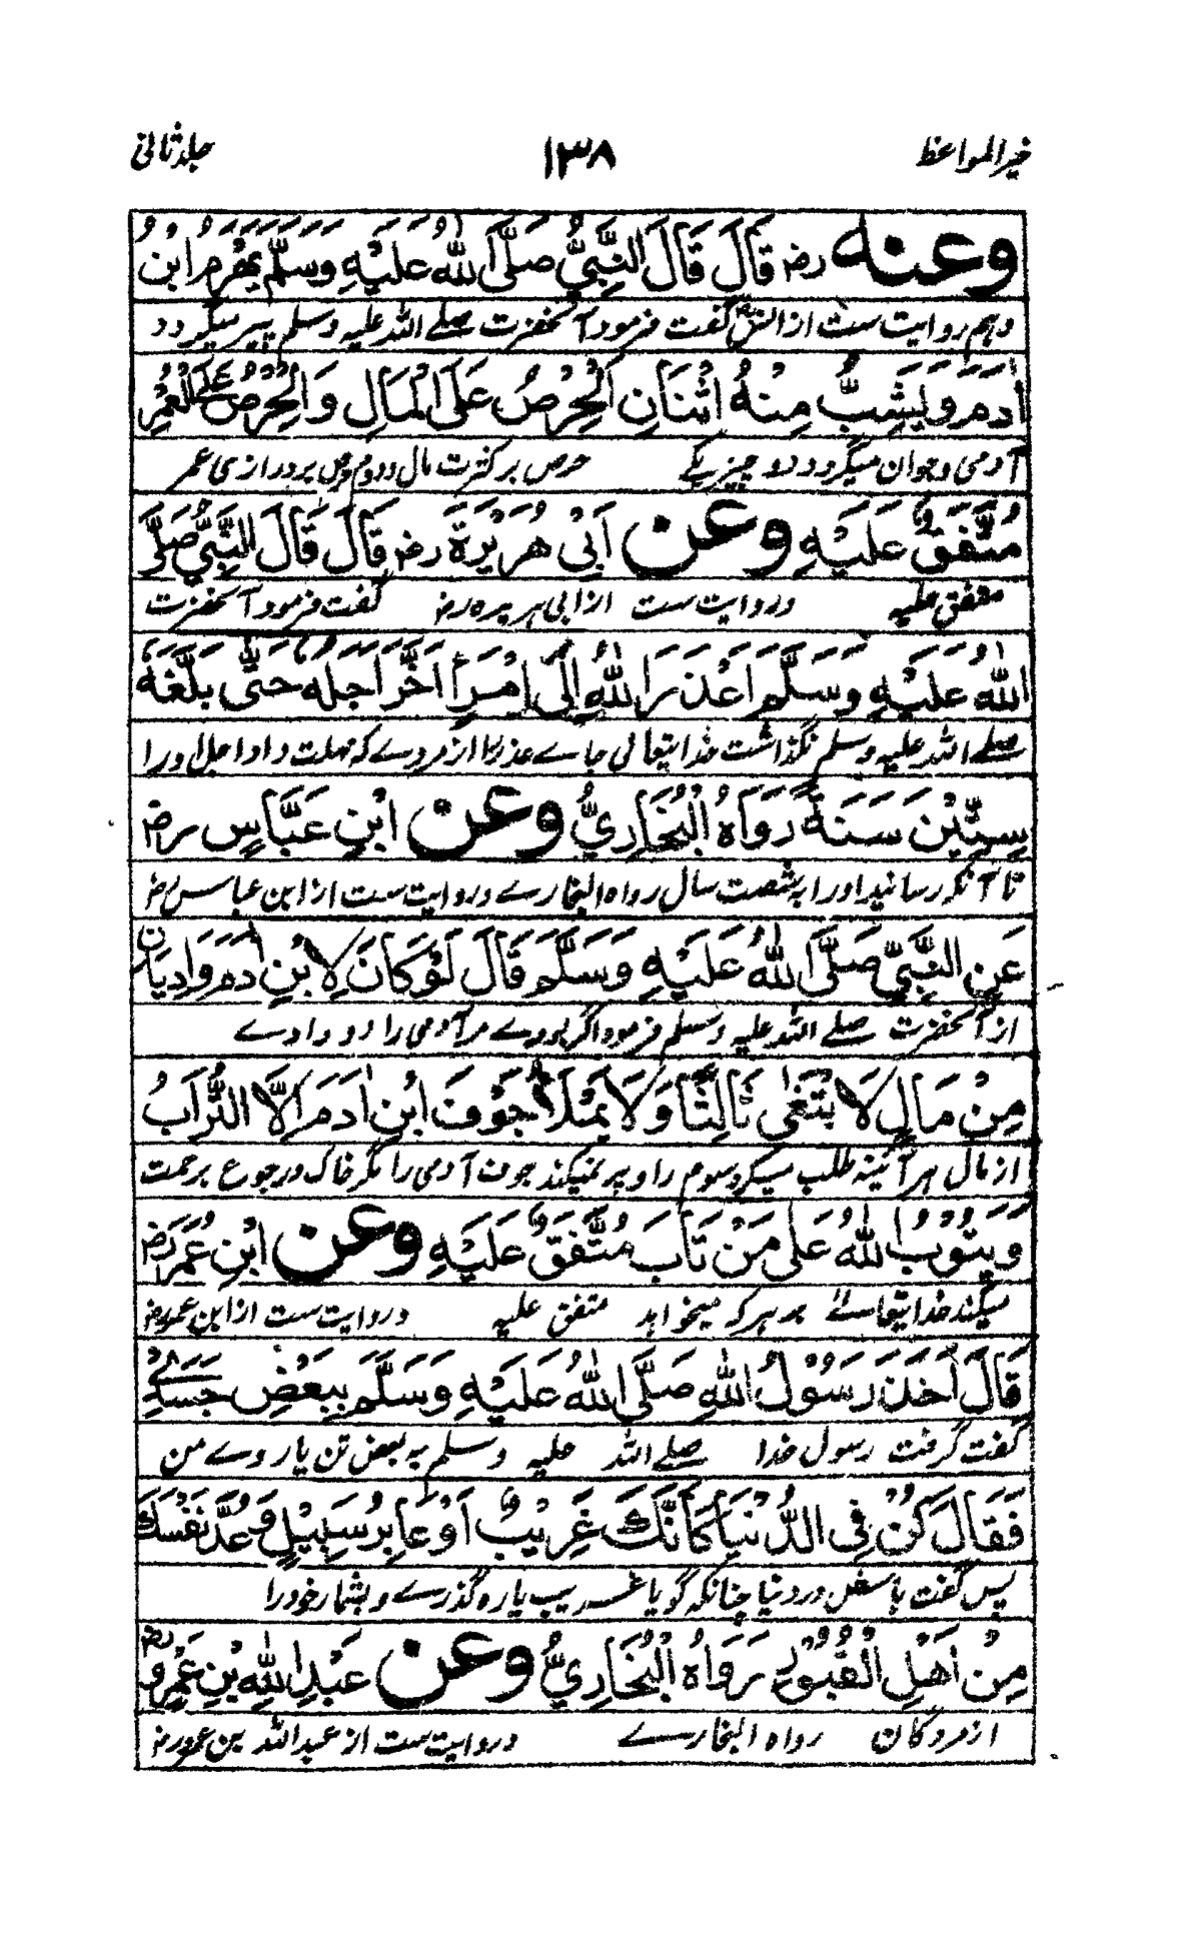 خیر المواعظ ۱۳۸ جلد ثانی
وعنه رض قَالَ قَالَ النَّبِيُّ صَلَّى اللهُ عَلَيْهِ وَسَلَّمَ يَهْرَمُ ابْنُ
وہم روایت ست از انس گفت فرمود آنحضرت صلے اللہ علیہ وسلم پیر میگردد
اٰدَمَ وَيَشِبُّ مِنْهُ اثْنَانِ الْحِرْصُ عَلَى الْمَالِ وَالْحِرْصُ عَلَى الْعُمُرِ
آدمی وجوان میگردد دو چیز یکے حرص بر کثرت مال ودوم حرص بر درازی عمر
مُتَّفَقٌ عَلَيْهِ وعن اَبِيْ هُرَيْرَةَ رض قَالَ قَالَ النَّبِيُّ صَلَّى
متفق علیہ وروایت ست از ابی ہریرہ رض گفت فرمود آنحضرت
اللهُ عَلَيْهِ وَسَلَّمَ اَعْذَرَ اللهُ اِلَى امْرَأٍ اَخَّرَ اَجَلَهُ حَتّٰى بَلَّغَهُ
صلے اللہ علیہ وسلم نگذاشت خدایتعالی جاے عذر را از مردے کہ مہلت داد اجل ورا
سِتِّيْنَ سَنَةً رَوَاهُ الْبُخَارِيُّ وعن ابْنِ عَبَّاسٍ رض
تا آنکہ رسانید اورا بہ شصت سال رواہ البخارے وروایت ست از ابن عباس رض
عَنِ النَّبِيِّ صَلَّى اللهُ عَلَيْهِ وَسَلَّمَ قَالَ لَوْ كَانَ لِابْنِ اٰدَمَ وَادِيَانِ
از آنحضرت صلے اللہ علیہ وسلم فرمود اگر بودے مر آدمی را دو وادے
مِنْ مَالٍ لَا بْتَغٰى ثَالِثًا وَلَا يَمْلَأُ جَوْفَ ابْنِ اٰدَمَ اِلَّا التُّرَابُ
از مال ہر آئینہ طلب میکرد سوم را و پر نمیکند جوف آدمی را مگر خاک ورجوع برحمت
وَيَتُوْبُ اللهُ عَلٰى مَنْ تَابَ مُتَّفَقٌ عَلَيْهِ وعن ابْنِ عُمَرَ رض
میکند خدایتعالےٰ بہر کہ میخواہد متفق علیہ وروایت ست از ابن عمر رض
قَالَ اَخَذَ رَسُوْلُ اللهِ صَلَّى اللهُ عَلَيْهِ وَسَلَّمَ بِبَعْضِ جَسَدِيْ
گفت گرفت رسول خدا صلے اللہ علیہ وسلم بہ بعض تن یا روے من
فَقَالَ كُنْ فِي الدُّنْيَا كَاَنَّكَ غَرِيْبٌ اَوْ عَابِرُ سَبِيْلٍ وَعُدَّ نَفْسَكَ
پس گفت باش در دنیا چنانکہ گویا غریب یا رہ گذرے وبشمار خود را
مِنْ اَهْلِ الْقُبُوْرِ رَوَاهُ الْبُخَارِيُّ وعن عَبْدِ اللهِ بْنِ عَمْرٍو رض
از مردگان رواہ البخارے وروایت ست از عبداللہ بن عمرو رض